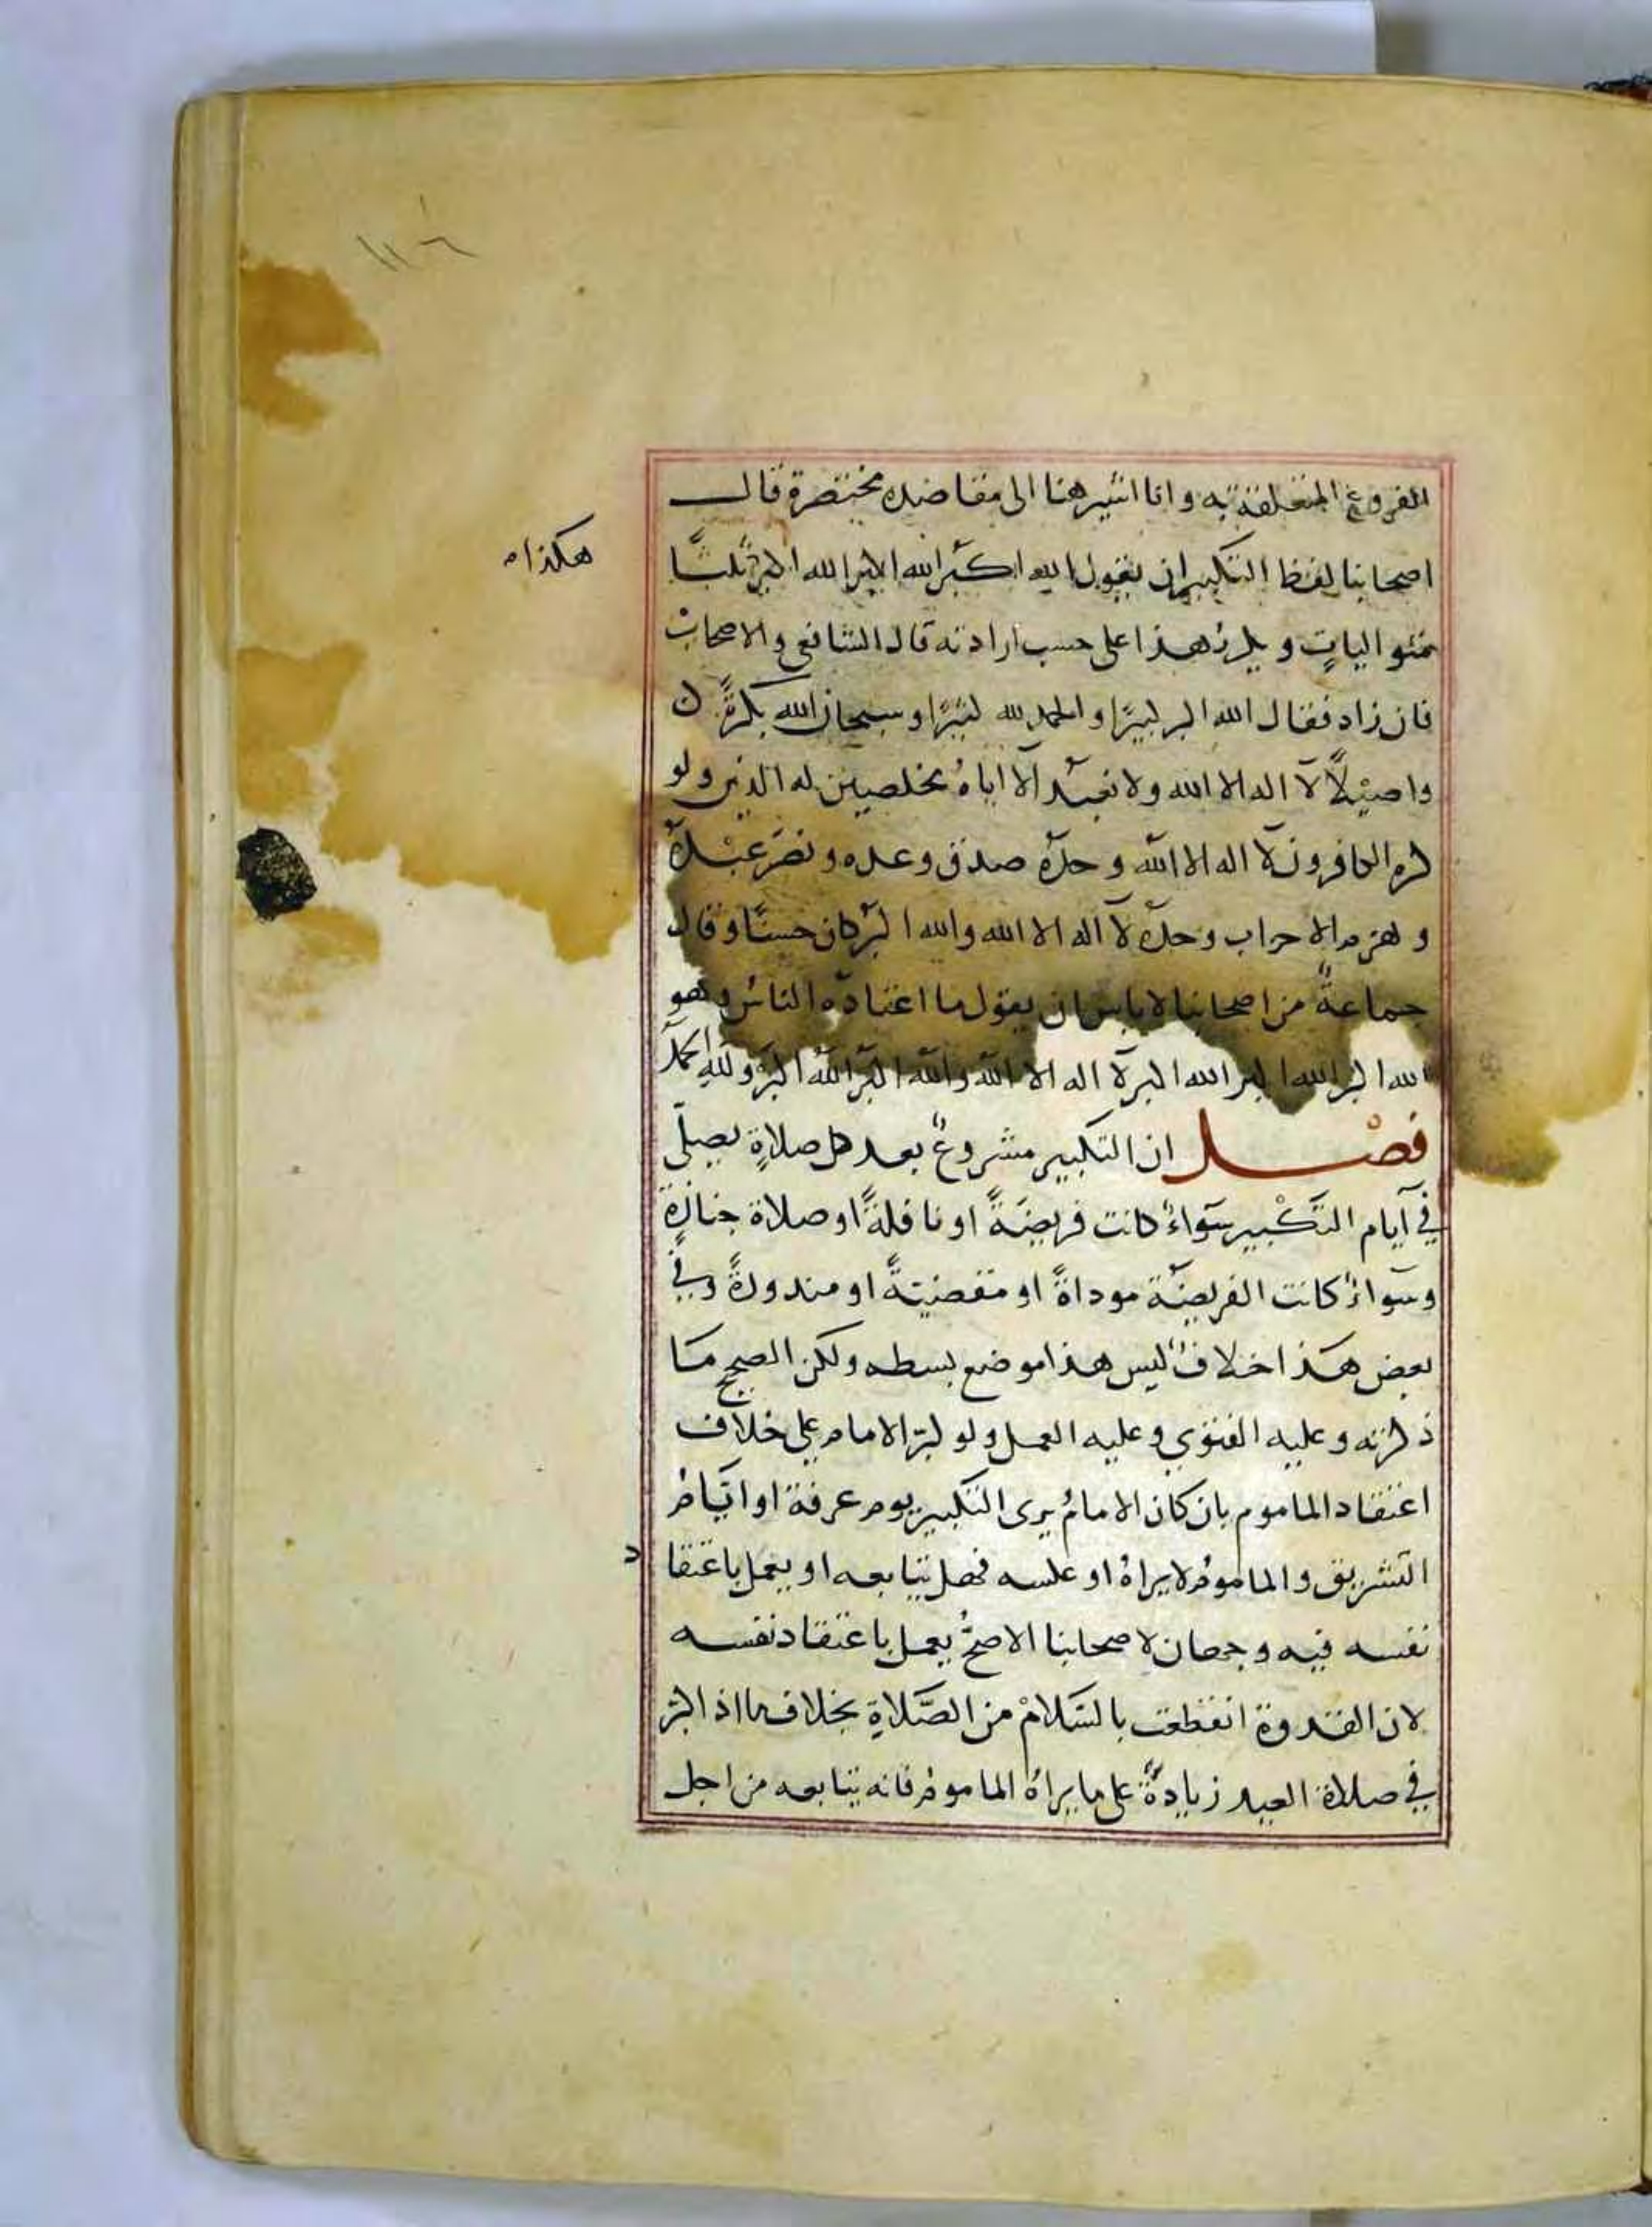 ١١٦
الفروع المتعلقة به وانا اشير هنا الى مقاصده مختصرة قال
اصحابنا لفظ التكبير ان يقول الله اكبر الله اكبر الله اكبر ثلثا
هكذا
متواليات ويكرر هذا على حسب ارادته قال الشافعي والاصحاب
فان زاد فقال الله اكبر كبيرًا والحمد لله كثيرًا وسبحان الله بكرةً
واصيلًا لا اله الا الله ولا نعبد الا اياه مخلصين له الدين ولو
كره الكافرون لا اله الا الله وحده صدق وعده ونصر عبده
وهزم الاحزاب وحده لا اله الا الله والله اكبر كان حسنًا وقال
جماعةٌ من اصحابنا لا باس ان يقول ما اعتاده الناس وهو
الله اكبر الله اكبر الله اكبر لا اله الا الله والله اكبر الله اكبر ولله الحمد
فصل ان التكبير مشروعٌ بعد كل صلاةٍ يصلّي
في ايام التكبير سواءٌ كانت فريضةً او نافلةً او صلاة جنازةٍ
وسواءٌ كانت الفريضة موداةً او مقضيتةً او منذورةً وفي
بعض هذا اختلافٌ ليس هذا موضع بسطه ولكن الصحيح ما
ذكرته وعليه الفتوي وعليه العمل ولو كبّر الامام علي خلاف
اعتقاد الماموم بان كان الامامُ يرى التكبير يوم عرفة او ايام
التشريق والمامومُ لا يراهُ او عكسه فهل يتابعه او يعمل باعتقا
د
نفسه فيه وجهان لاصحابنا الاصحُّ يعمل باعتقاد نفسه
لان القدوة انقطعت بالسّلامْ من الصَّلاةِ بخلاف ما اذ اكبر
في صلاة العيد زيادةً على ما يراهُ الماموم فانه يتابعه من اجل